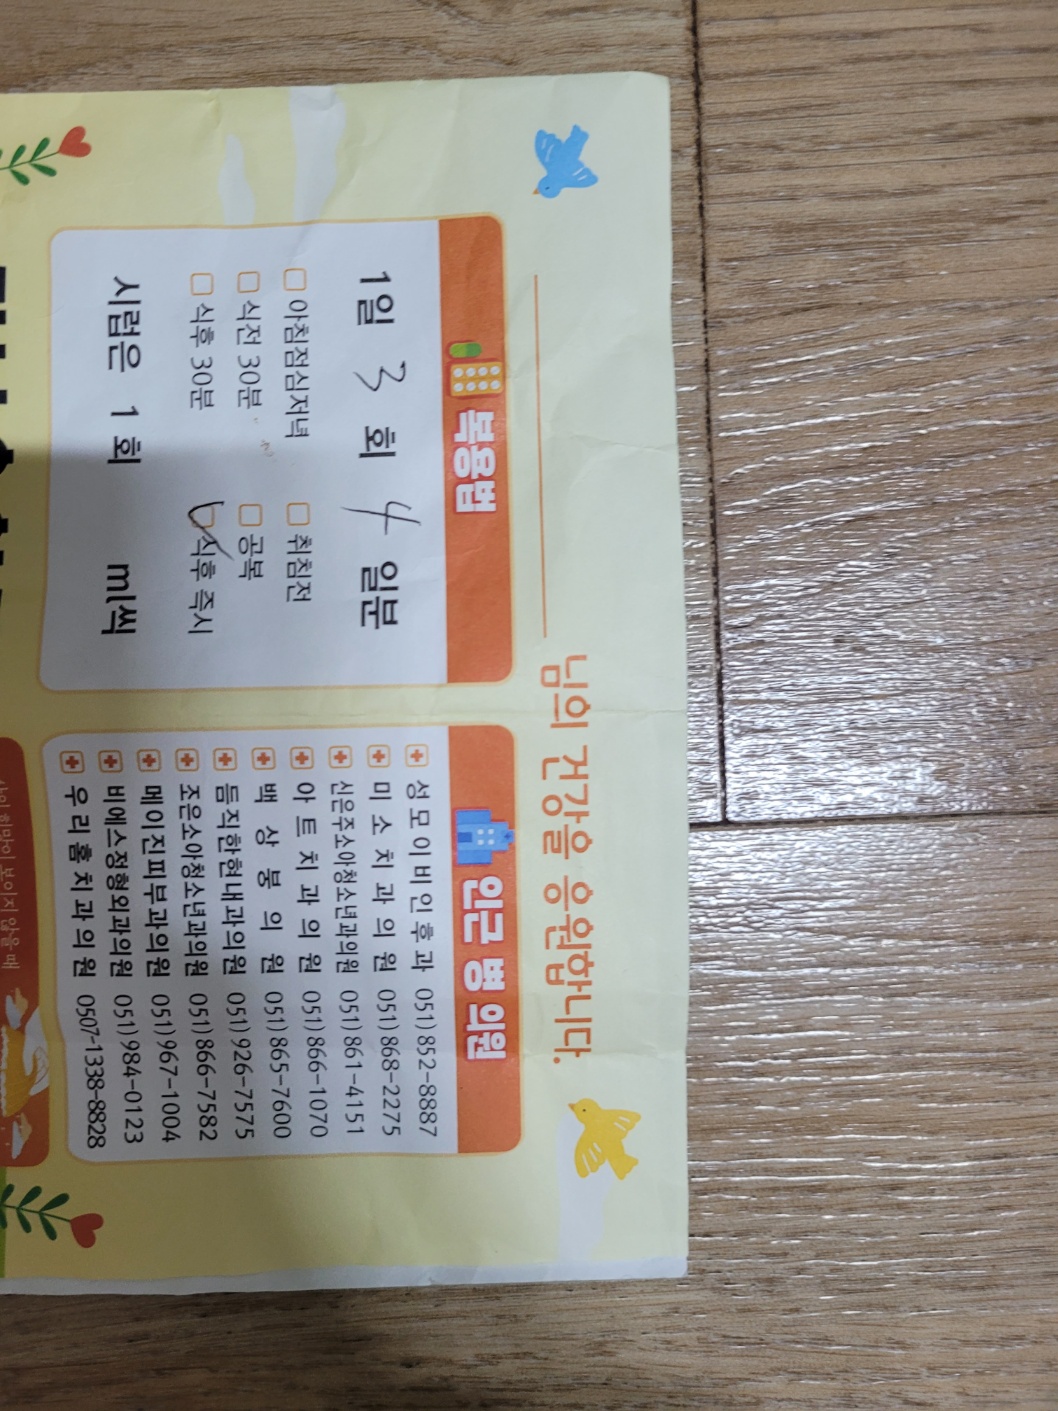 님의 건강을 응원합니다.
복용법
1일 3 회 4 일분
아침점심저녁 취침전
식전 30분 공복
식후 30분 식후 즉시
시럼은 1 회 ml씩
인근 병 의원
성모이비인후과 051)852-8887
미소치과의원 051)868-2275
신은주소아청소년과의원 051)861-4151
아트치과의원 051)866-1070
백상봉의원 051)865-7600
듬직한현내과의원 051)926-7575
조은소아청소년과의원 051)866-7582
메이진피부과의원 051)967-1004
비에스정형외과의원 051)984-0123
우리홈치과의원 0507-1338-8828
희망이 보이지 않을 때